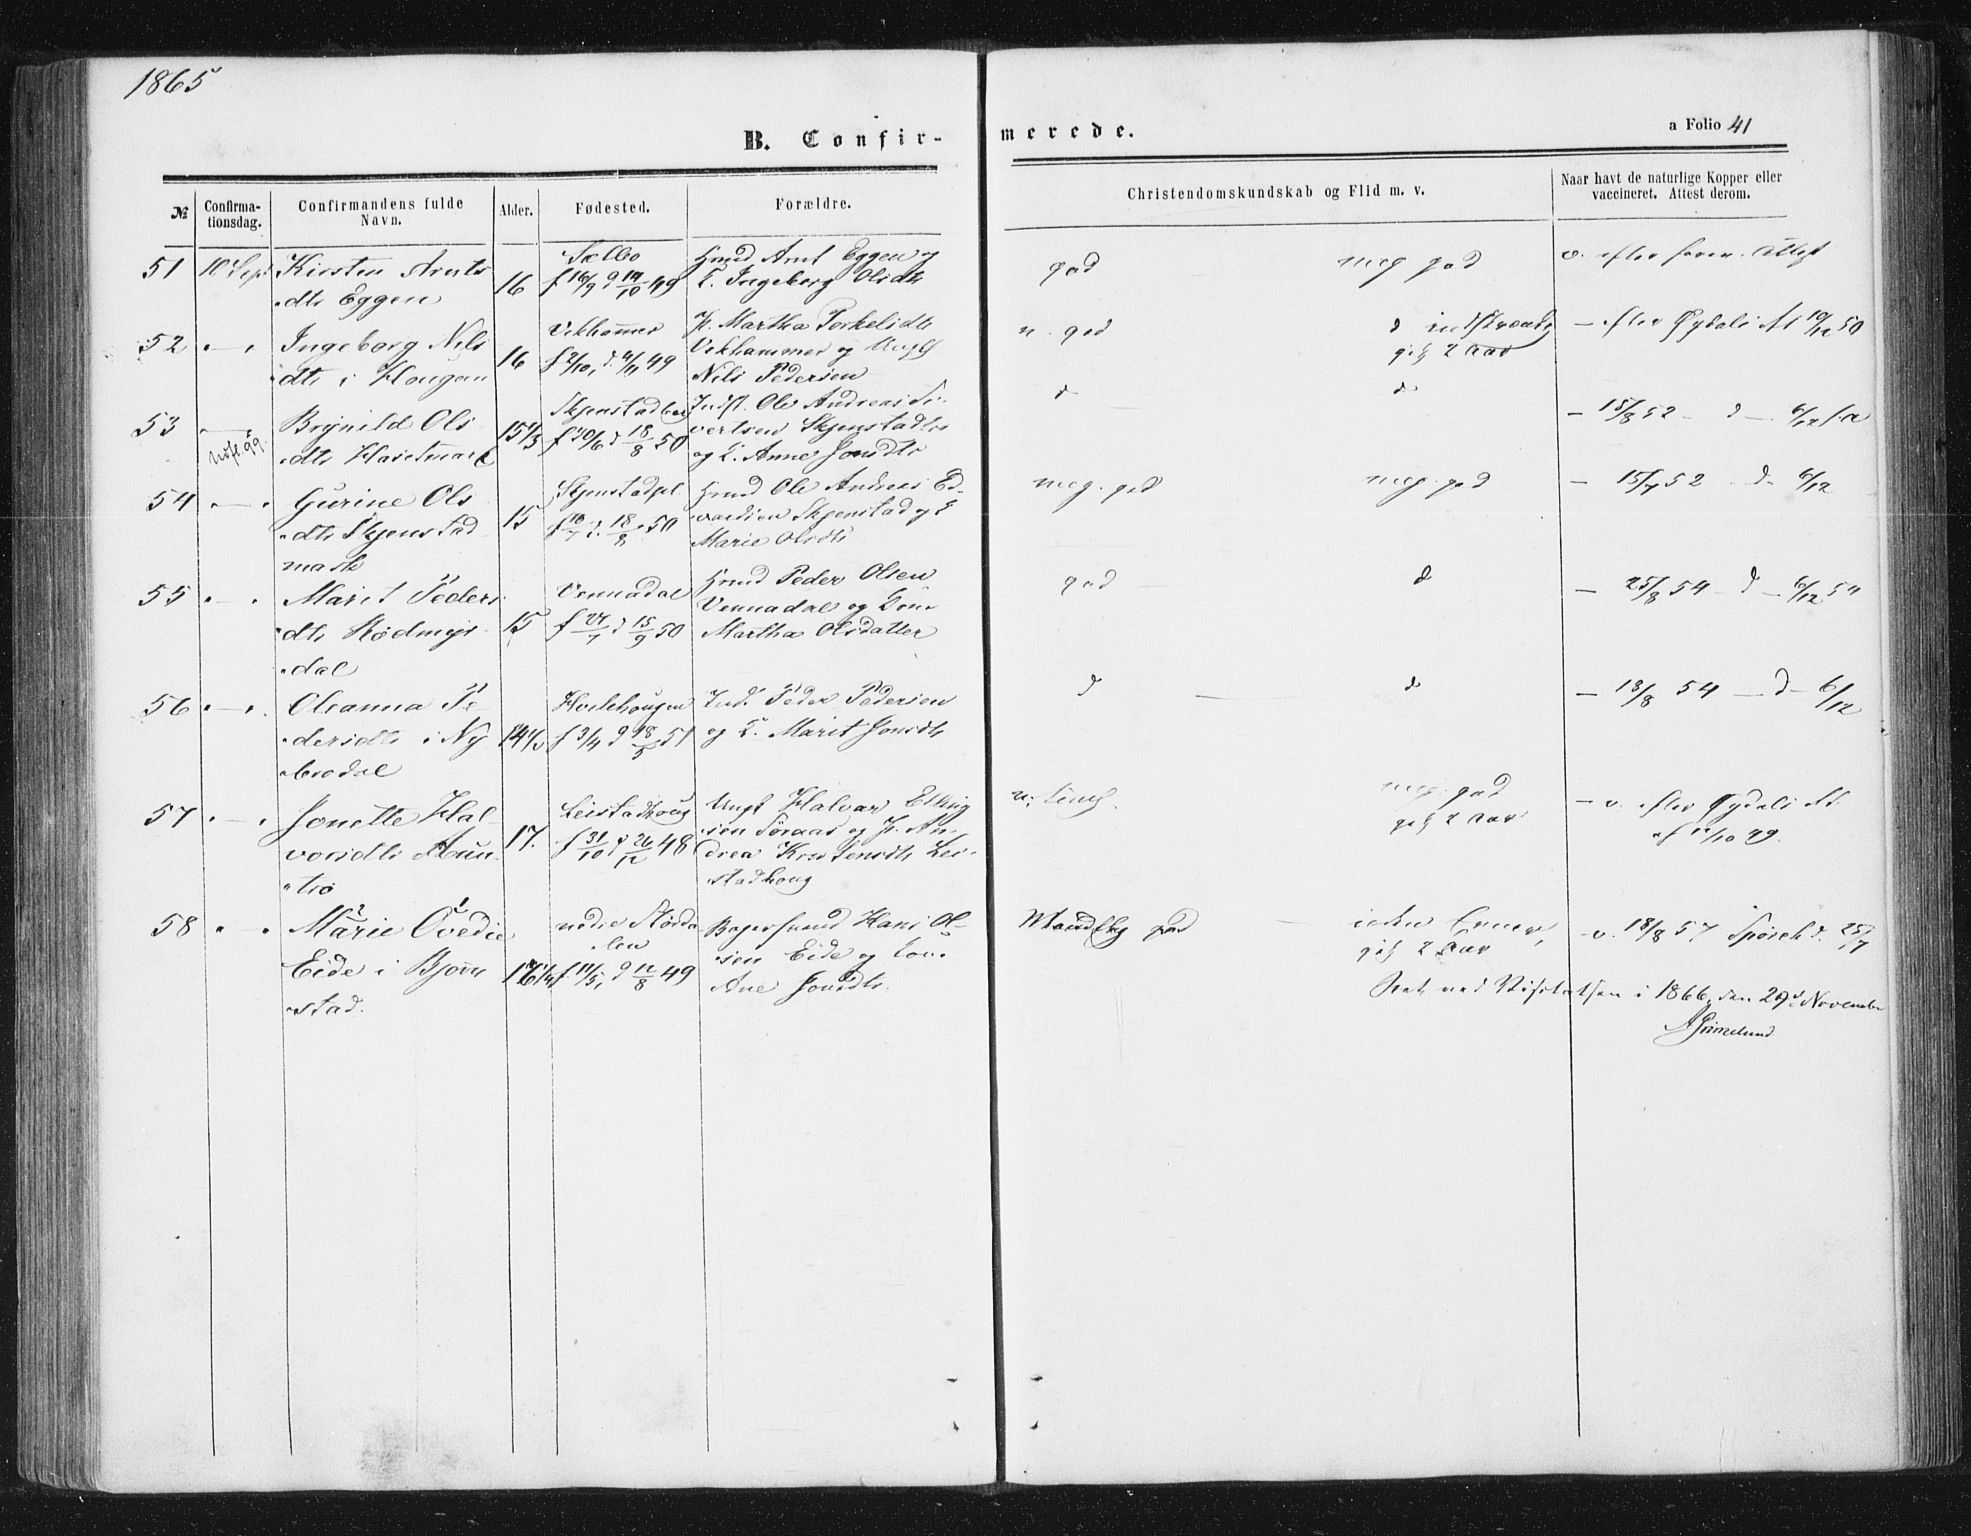 1865
B. Confir-
merede.
a Folio 41
№
Confirma-
tionsdag.
Confirmandens fulde
Navn.
Alder.
Fødested.
Forældre.
Christendomskundskab og Flid m. v.
Naar havt de naturlige Kopper eller
vaccineret. Attest derom.
51 10 Sept Kirsten Arnts
dtr Eggen
16
Sælbo
f 16/9 d 14/10 49
Gmd Arnt Eggen og
K. Ingeborg Olsdtr
god
meg. god
v. efter foren. Attest
52 " — " Ingeborg Nils
dtr i Haugan
16
Vikhammer
f 2/10, d. 4/11 49
P. Martha Torkelsdtr
Vikhammer og Ungk
Nils Pedersen
n. god
d
gik 2 Aar
— efter Øydals At 10/12 50
53 " — " Brynild Ols
dtr Hasetmark
15 1/3
f 10/6 d 18/8 50
Indst. Ole Andreas Si-
vertsen Skjenstad
og K. Anne Jonsdtr
d
d
— 15/8 52 — d — 6/12
54 " — " Gurine Ols
dtr Skjenstad
mark
15
Skjenstadpl
f 10/7 d. 18/8 50
Gmd Ole Andreas Ed-
vardsen Skjenstad og K
Marie Olsdtr
meg. god
meg. god
— 15/7 52 d — 6/12
55 " — " Marit Peders
dtr Stødmyr
dal
15
Vennadal
f 27/7 d 15/9 50
Gmd Peder Olsen
Vennadal og Kone
Martha Olsdatter
god
d
— 25/8 54 — d — 6/12 54
56 " — " Oleanna Pe
dersdtr i Ny
brodal
14 1/2
f 3/4 d 18/5 51
Ind. Peder Pedersen
og K. Marit Jonsdtr
d
d
— 18/8 54 — d — 6/12
57 " — " Jonette Hal
vorsdtr Mun
tro
17.
Leistadhaug
f 31/10 d 26/12 48
Ungk Halvar Elling
sen Føraas og P. An
drea Kristensdtr Lei
stadhaug
meg. god
gik 2 Aar
— v. efter Øydals At.
af 11/10 49.
58 " — " Marie Ovedie
Eide i Bjørn
stad.
16 1/4
nedre Størda
len
f 11/5, d 12/8 49
Hans Ol-
sen Eide og Kone
Ane Jonsdtr.
Maadelig god
gik 2 Aar
— v. 18/8 57 25/7
Seet ved Visitatsen i 1866, den 29de November
A Grimelund